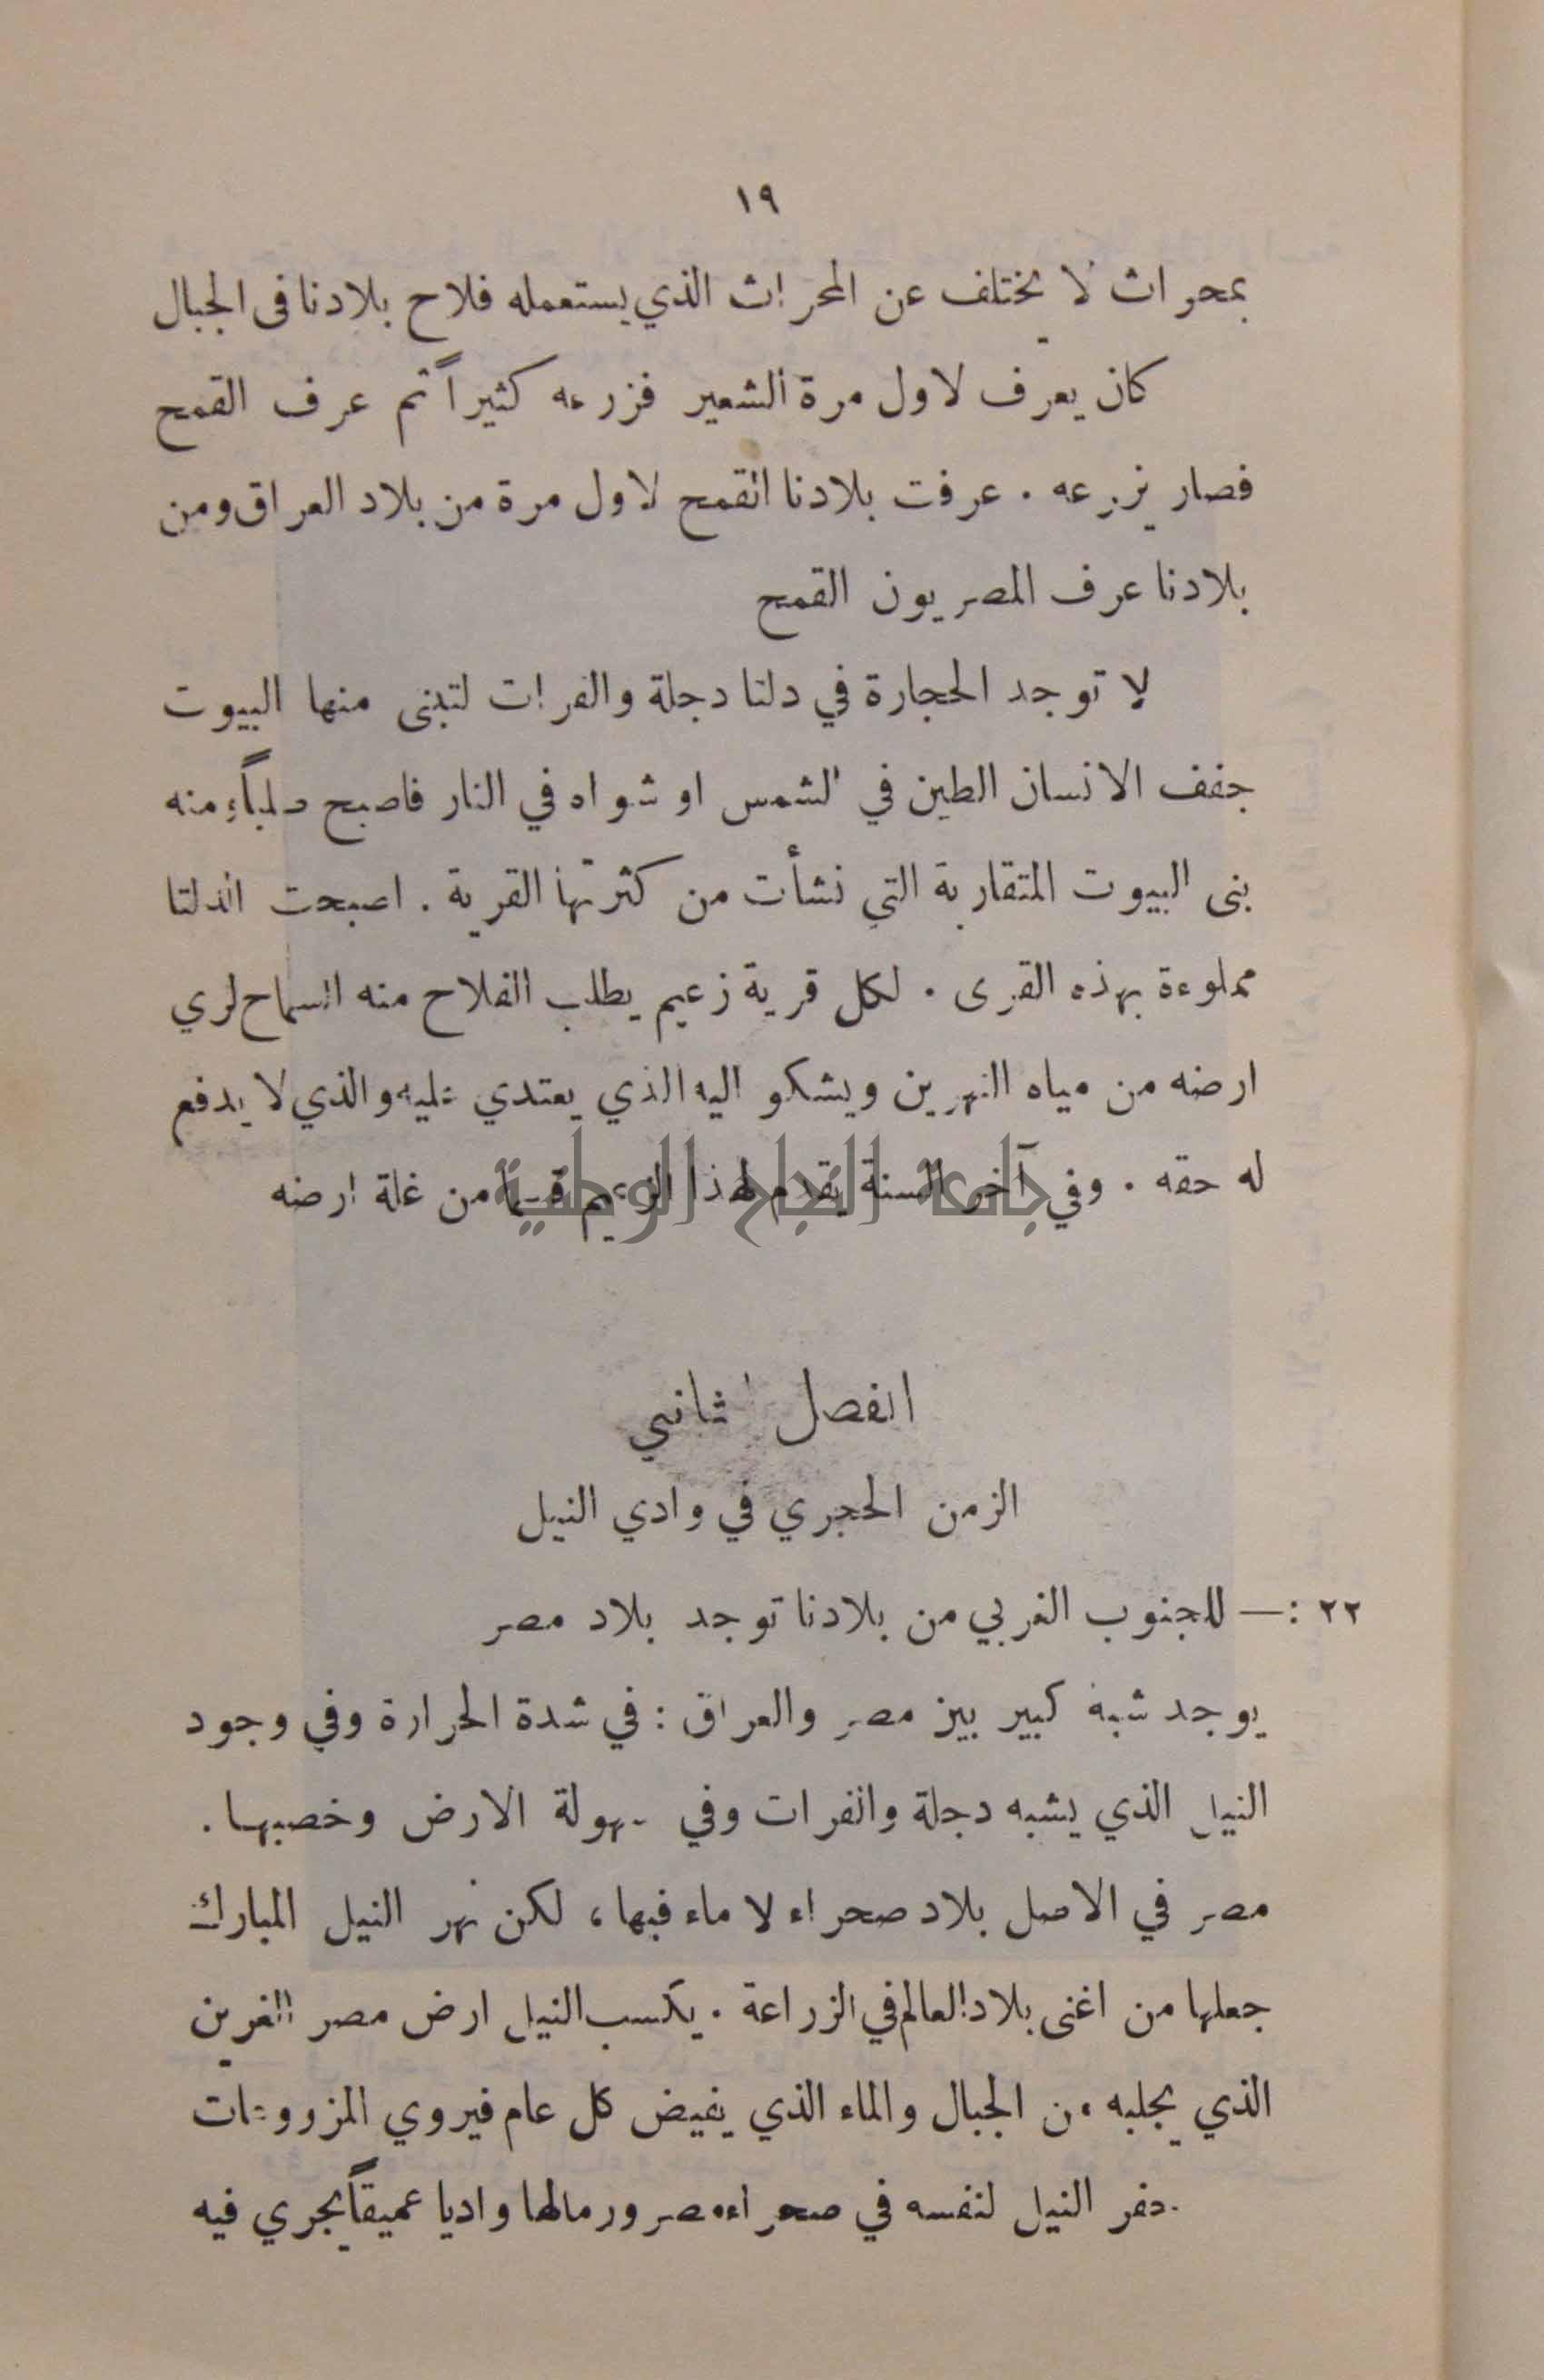 ١٩
بمحراث لا يختلف عن المحراث الذي يستعمله فلاح بلادنا فى الجبال
كان يعرف لاول مرة الشعير فزرعه كثيراً ثم عرف القمح
فصار يزرعه . عرفت بلادنا القمح لاول مرة من بلاد العراق ومن
بلادنا عرف المصريون القمح
لا توجد الحجارة في دلتا دجلة والفرات لتبنى منها البيوت
جفف الانسان الطين في الشمس او شواه في النار فاصبح صلباً، منه
بنى البيوت المتقاربة التي نشأت من كثرتها القرية . اصبحت الدلتا
مملوءة بهذه القرى . لكل قرية زعيم يطلب الفلاح منه السماح لري
ارضه من مياه النهرين ويشكو اليه الذي يعتدي عليه والذي لا يدفع
له حقه . وفي آخر السنة يقدم لهذا الزعيم قسماً من غلة ارضه
جامعة النجاح الوطنية
الفصل الثاني
الزمن الحجري في وادي النيل
٢٢ :— للجنوب الغربي من بلادنا توجد بلاد مصر
يوجد شبه كبير بين مصر والعراق : في شدة الحرارة وفي وجود
النيل الذي يشبه دجلة والفرات وفي سهولة الارض وخصبها .
مصر في الاصل بلاد صحراء لا ماء فيها ، لكن نهر النيل المبارك
جعلها من اغنى بلاد العالم في الزراعة . يكسب النيل ارض مصر الغرين
الذي يجلبه من الجبال والماء الذي يفيض كل عام فيروي المزروعات
حفر النيل لنفسه في صحراء مصر ورمالها واديا عميقاً يجري فيه